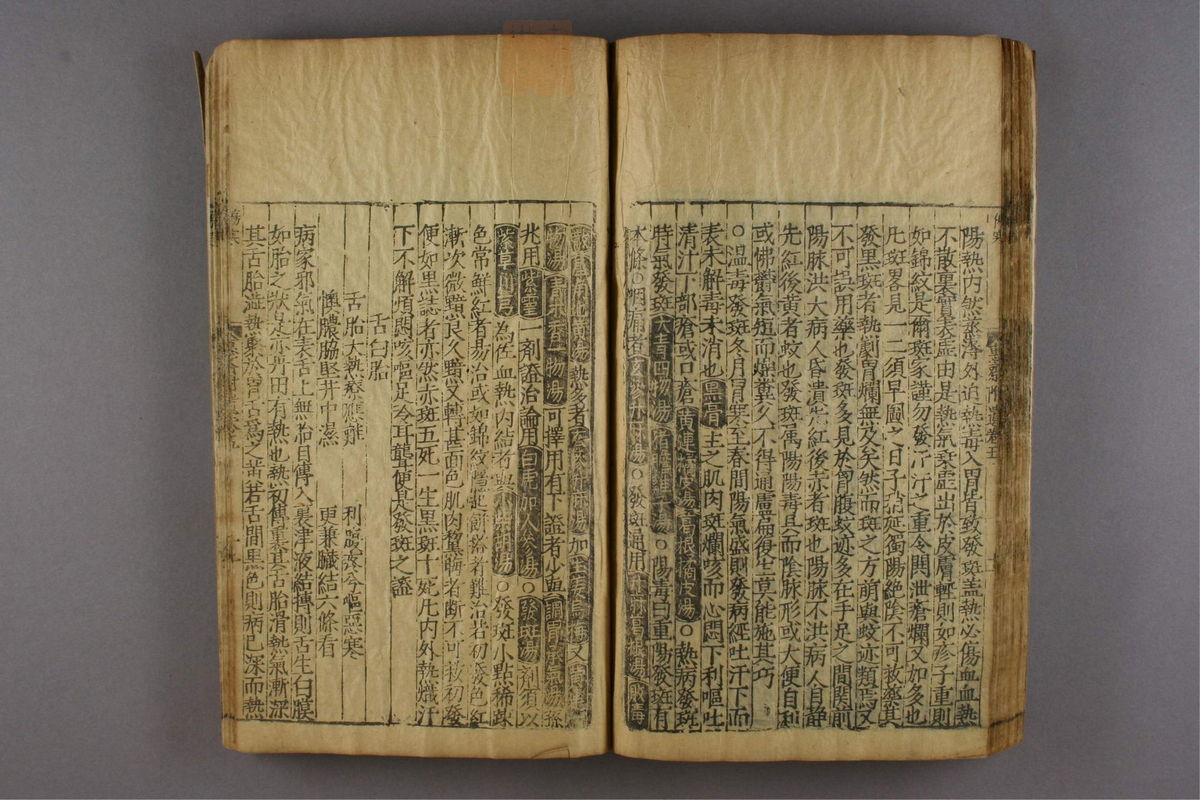 陽熱內然蒸薄外迫熱毒入胃皆致發斑蓋熱必傷血血熱
不散裏實表虛由是熱氣乘虛出於皮膚輕則如疹子重則
如錦紋是爾斑家謹勿發汗汗之重令開泄瘡爛又如多也
凡斑畧見一二須早圖之日子稍延獨陽絕陰不可救藥其
發黑斑者熱劇胃爛無及矣然而斑之方萌與蚊迹類焉又
不可誤用藥也發斑多見於胷腹蚊迹多在手足之間閱前
陽脉洪大病人昏憒先紅後赤者斑也陽脉不洪病人自靜
先紅後黄者蚊也發斑屬陽陽毒具而陰脉形或大便自利
或怫鬱氣短而燥糞久不得通盧扁復生莫能施其巧
○温毒發斑冬月冒寒至春間陽氣盛則發病經吐汗下而
表未解毒未消也黑膏主之肌肉斑爛咳而心悶下利嘔吐
清汁丁部瘡或口瘡黄連橘皮湯葛根橘皮湯○熱病發斑
時氣發斑大青四物湯猪膽雞子湯○陽毒曰重陽發斑有
本條○咽痛者玄參升麻湯○發斑通用
熱多者 加生
可擇用有下證者少與調胃承氣湯孫
兆用紫雪一劑證治論用白虎加人參湯○ 發斑湯 劑須以
紫草 爲佐血熱內結者與 湯○發斑小點稀踈
色常鮮紅者易治或如錦紋 難治若初發色紅
漸次微黯良久黯又轉甚面色肌肉黧晦者斷不可救初發
便如黑誌者亦然赤斑五死一生黑斑十死凡內外熱熾汗
下不解煩悶咳嘔足冷耳聾便是發斑之證
舌白胎
舌胎大熱 難 利 嘔惡寒
懊憹脇堅井中濕 更兼臟結六條看
病家邪氣在表舌上無胎自傳入裏津液結摶則舌生白膜
如胎之狀是亦丹田有熱也熱初傳裏其舌胎滑熱氣漸深
其舌胎澁熱聚於胃舌爲之黄若舌間黑色則病已深而熱